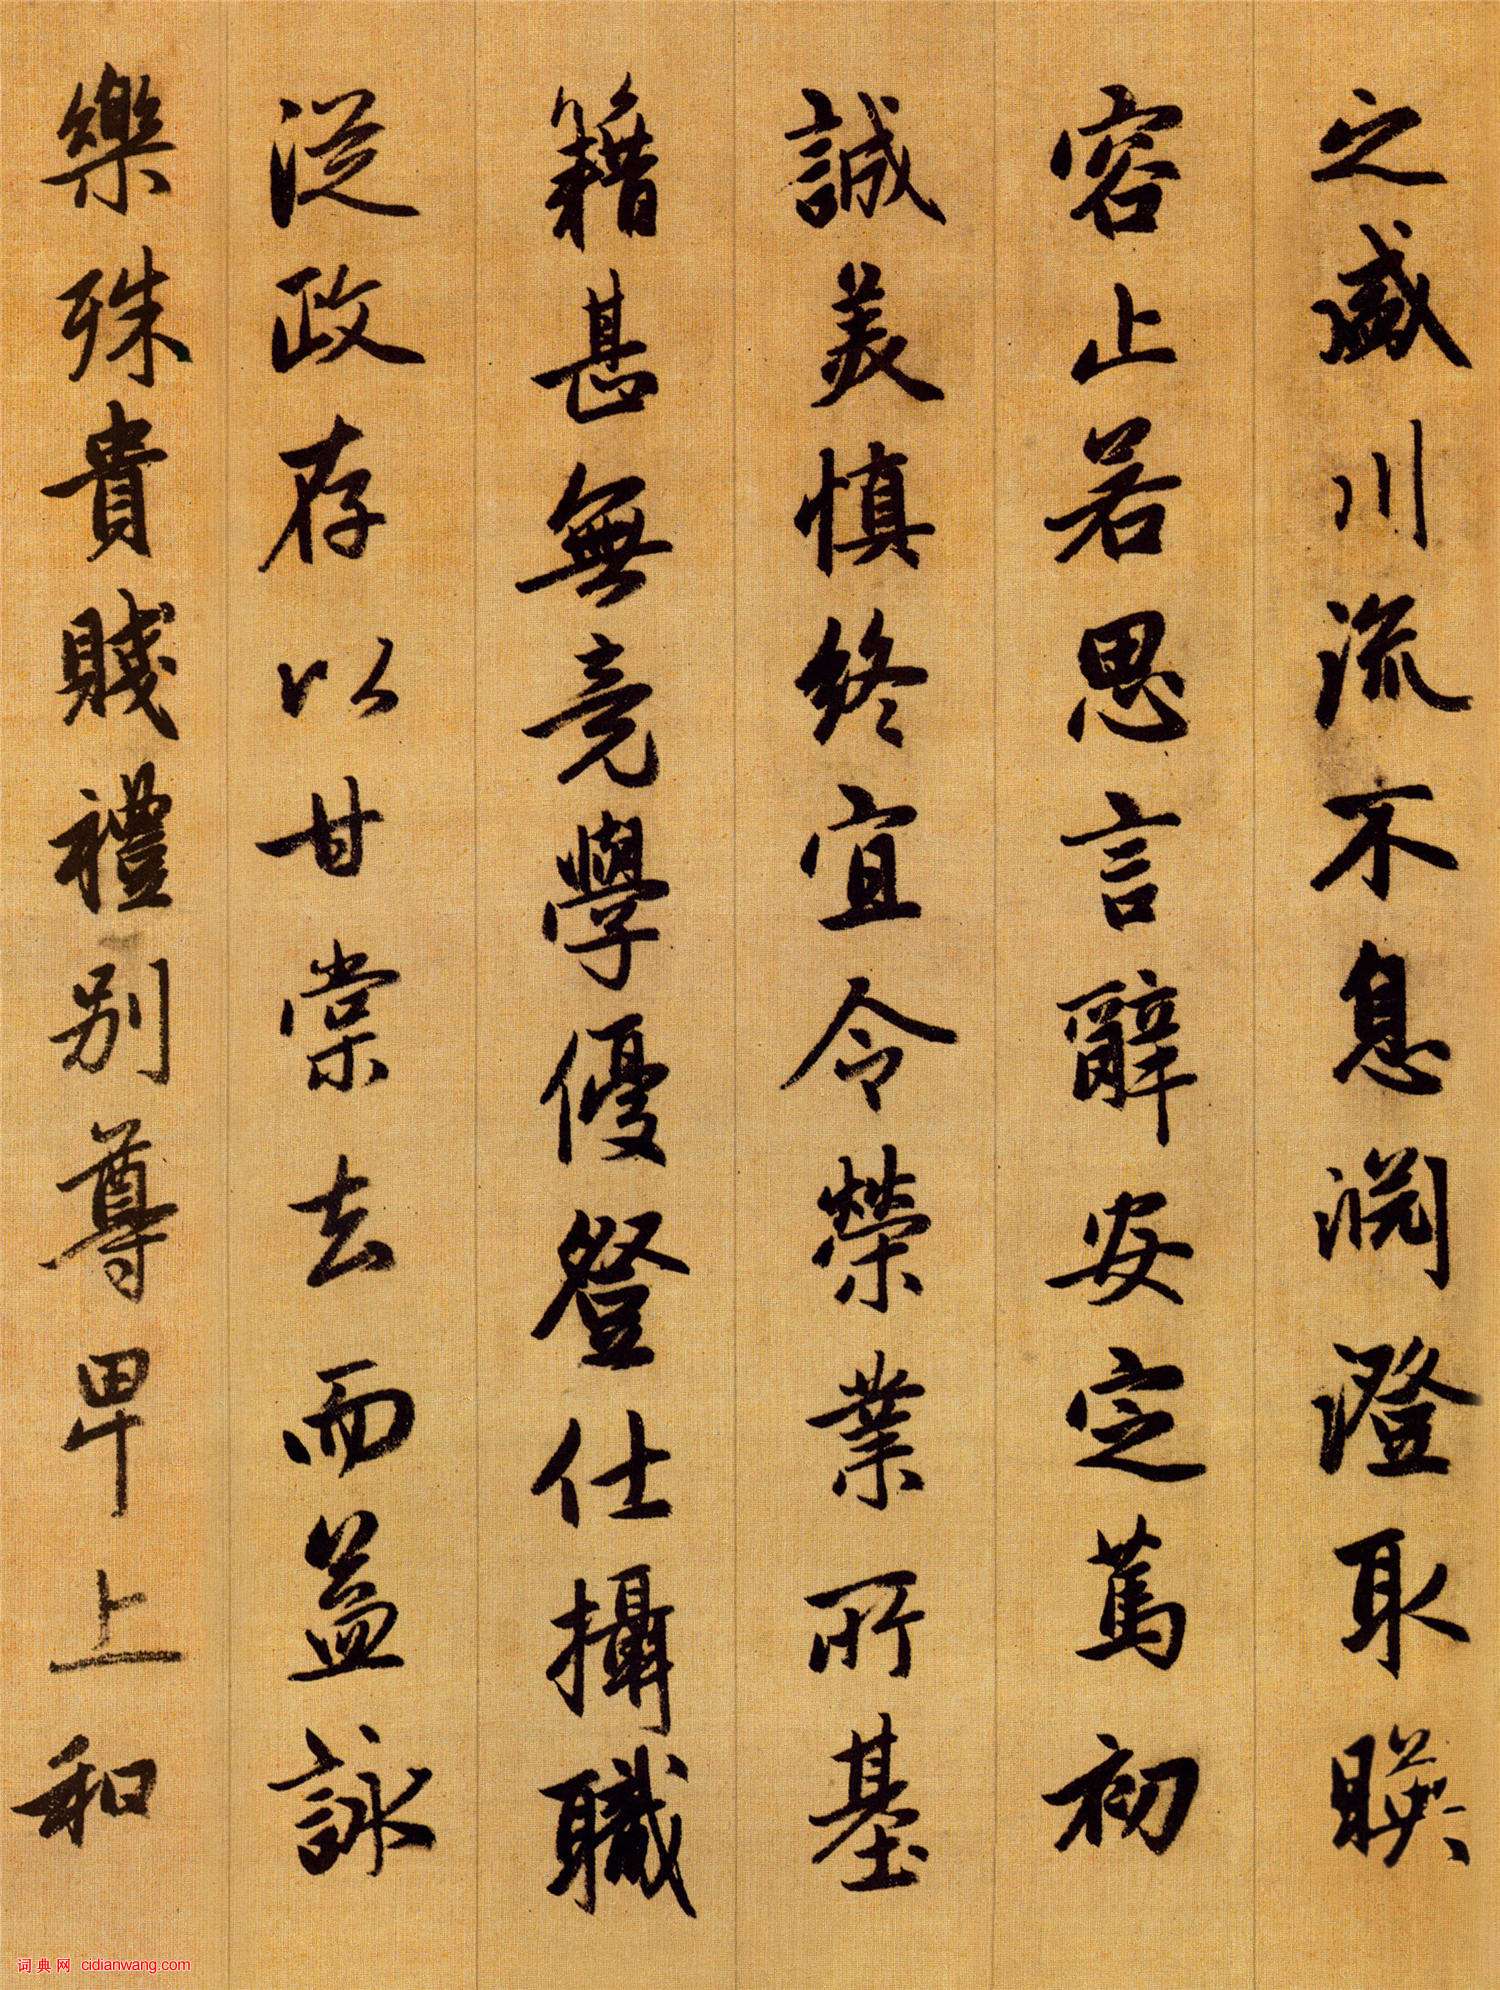 之盛川流不息渊澄取暎
容止若思言辭安定篤初
誠美慎終宜令榮業所基
籍甚無竟學優登仕攝職
從政存以甘棠去而益詠
樂殊貴賤禮别尊卑上和
词典网 cidianwang.com